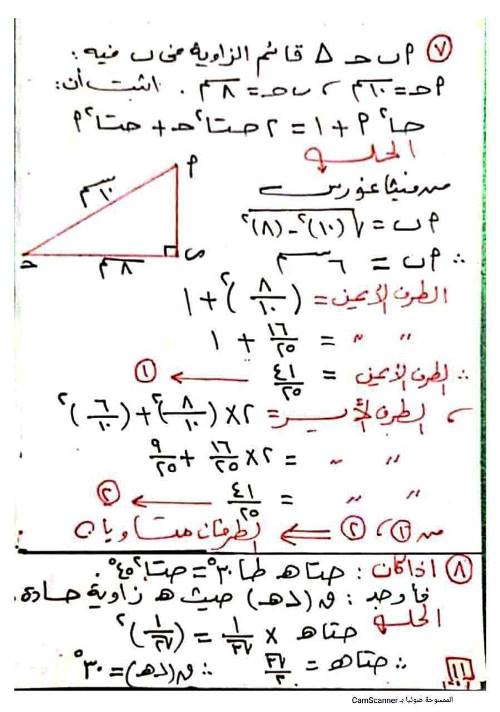 ٧ أ ب ج Δ قائم الزاوية فى ب فيه :
أج = ١٠سم ، ب ج = ٨سم . اثبت أن :
جا٢ أ + ١ = ٢ جتا٢ ج + جتا٢ أ
الحل
من فيثاغورس
أ ب = √(١٠)٢ - (٨)٢
∴ أ ب = ٦ سم
أ
١٠سم
ج ٨سم ب
الطرف الأيمن = (٨/١٠)٢ + ١
〃 〃 = ١٦/٢٥ + ١
∴ الطرف الأيمن = ٤١/٢٥ ← ١
، الطرف الأيسر = ٢ × (٨/١٠)٢ + (٦/١٠)٢
〃 〃 = ٢ × ١٦/٢٥ + ٩/٢٥
〃 〃 = ٤١/٢٥ ← ٢
من ١ ، ٢ ⇐ الطرفان متساويان
٨ اذا كان : جتا ه طا ٣٠° = جتا٢ ٤٥° .
فأوجد : ق(∠ه) حيث ه زاوية حادة .
الحل
جتا ه × ١/√٣ = (١/√٢)٢
∴ جتا ه = √٣/٢ ∴ ق(∠ه) = ٣٠°
١١
الممسوحة ضوئيا بـ CamScanner